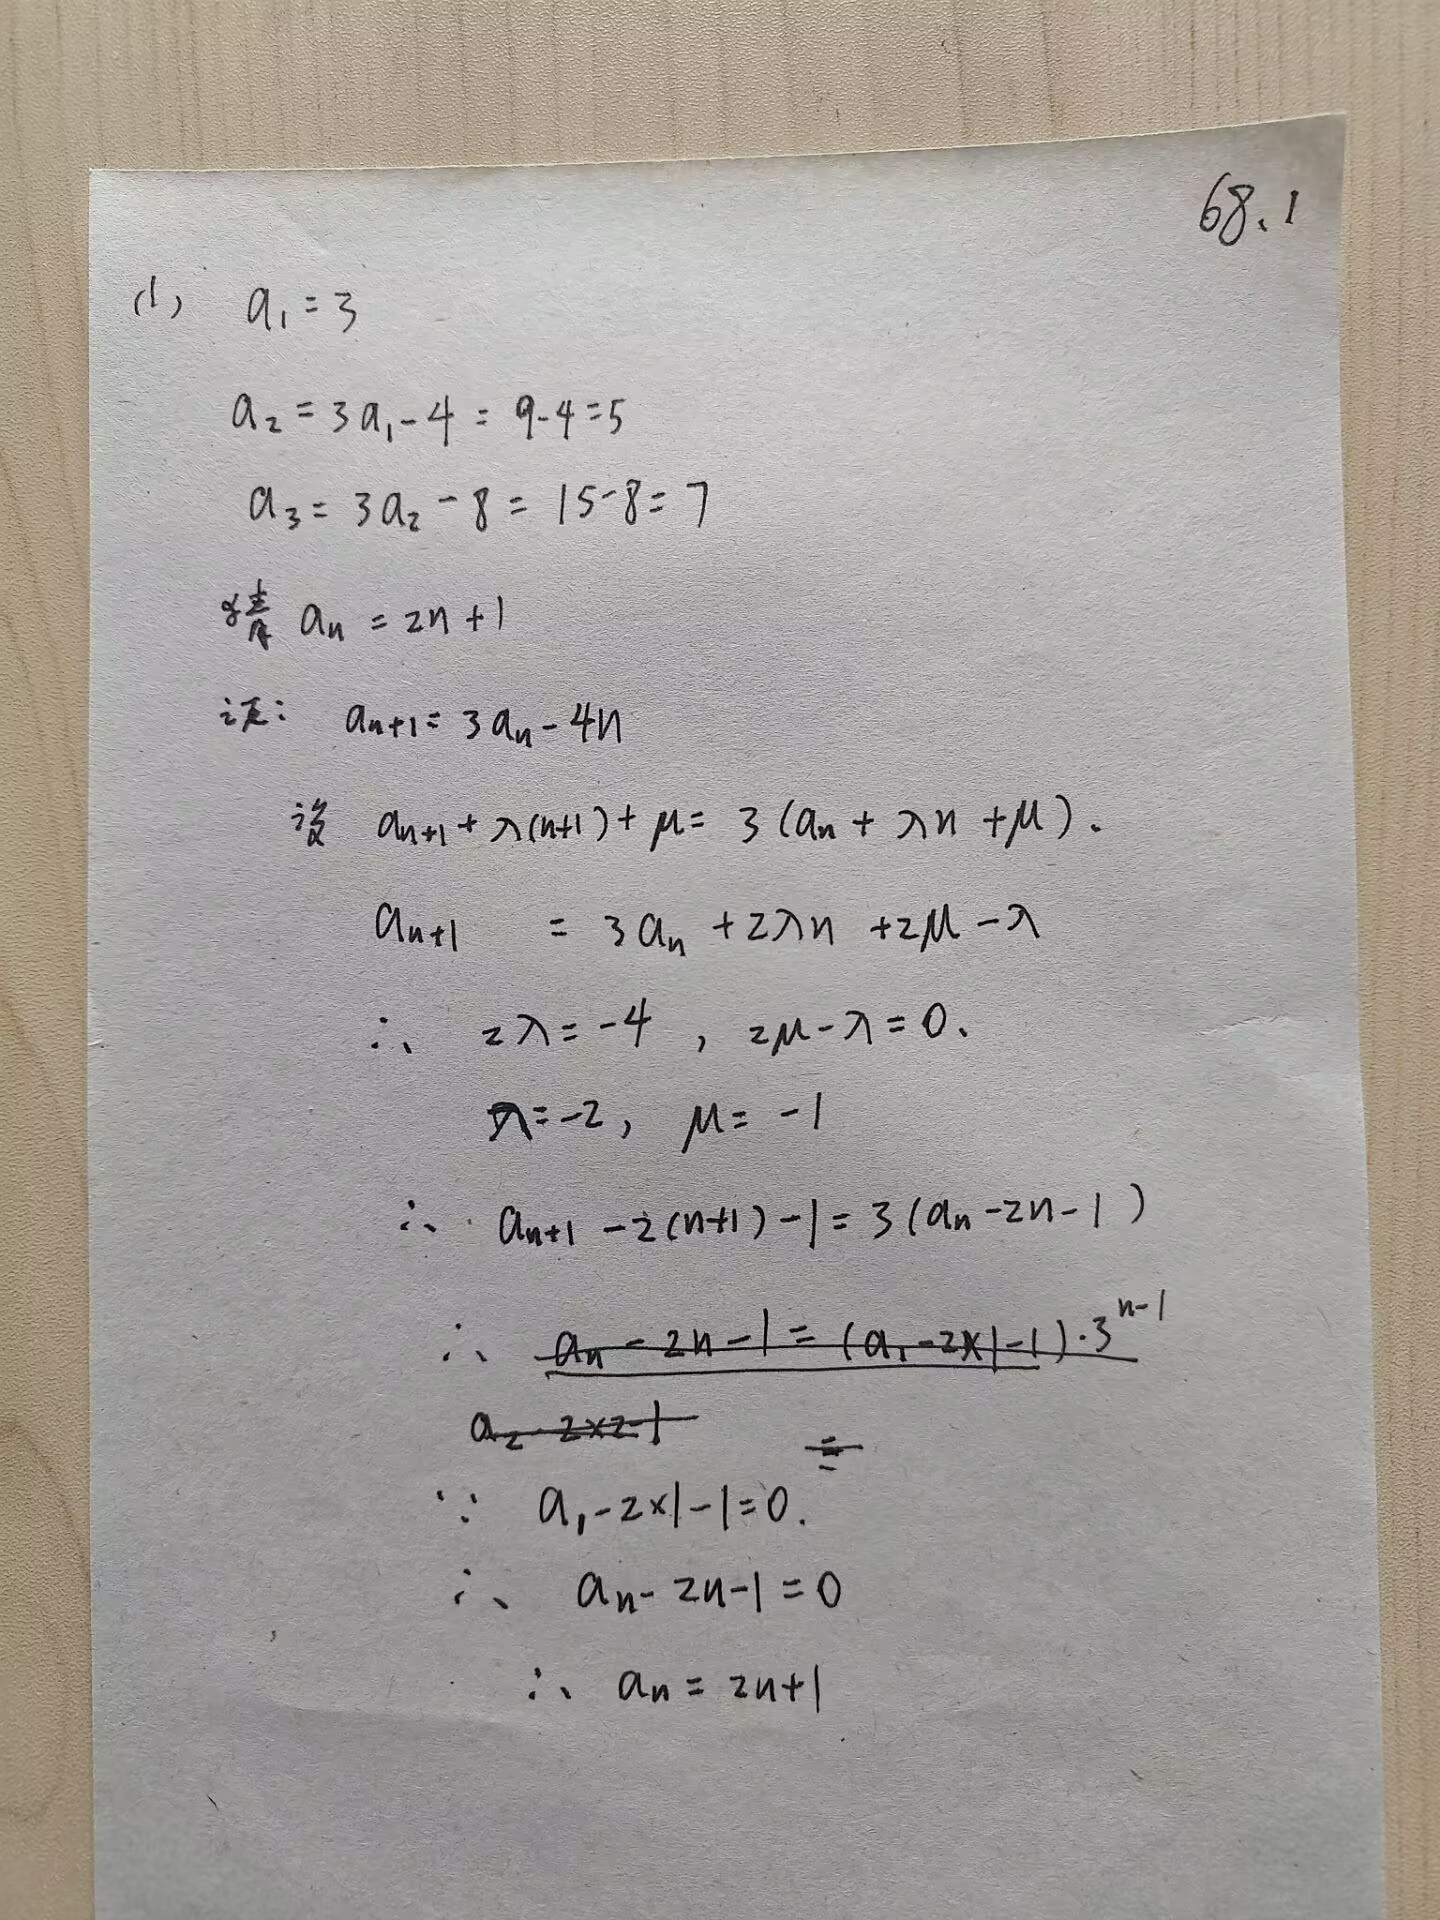 68.1
(1) a₁=3
a₂=3a₁-4=9-4=5
a₃=3a₂-8=15-8=7
猜 aₙ=2n+1
证: aₙ₊₁=3aₙ-4n
设 aₙ₊₁+λ(n+1)+μ=3(aₙ+λn+μ).
aₙ₊₁ =3aₙ+2λn+2μ-λ
∴ 2λ=-4, 2μ-λ=0.
λ=-2, μ=-1
∴ aₙ₊₁-2(n+1)-1=3(aₙ-2n-1)
∴ aₙ-2n-1=(a₁-2×1-1)·3ⁿ⁻¹
a₂-2×2-1 =
∵ a₁-2×1-1=0.
∴ aₙ-2n-1=0
∴ aₙ=2n+1